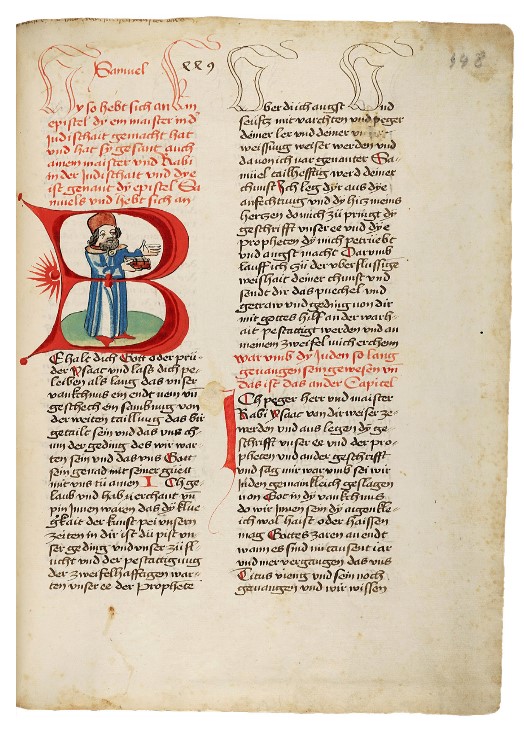 Samuel
889
148
Hy so hebt sich an Ein
epistel dy ein maister in der
Judischait gemacht hat
und hat sy gesant auch
ainem maister und Rabi
in der Judischait und dye
ist genant dy epistel Sa
muels und hebt sich an
BEhalt dich Gott oder prü
der Ysaac und lass dich pe
leiben als lang das unser
vankchnus ein endt nem un
geschech ein sambnug von
der weiten taillung das bir
getaile sein und das uns ch
um der geding des wir war
ten sein und das uns Gott
sein genad mit seiner güett
mit uns tü amen Ich ge
laub und hab erchant un
pin Innen warn das dy klue
gkait der kunst pei unsern
zeiten in dir ist dü pist un
ser geding und unser züfl
ucht und der pestattigung
der zweifelhafftigen war
ten unser ee der Prophete
Uber dich angst Und
seuftz mit varchten und peger
deiner ler und deiner
weissung weiset werden und
da von ich war genanter Sa
muel tailhefftig werd deiner
chunst Ich leg dyr aus dye
anfechtung und dy hicz meins
herczen do mich zü pringt dy
geschrifft unser ee und dye
propheten dy mich petriebt
und angst macht Darumb
lauff ich zü der uberflussige
weishait deiner chunst und
sendt dir das puechel und
getraw und geding von dir
mit gottes hilf an der warh
ait pestattigt werden und an
meinem zweifel mich erchenn
warumb dy Juden so lang
gevangen sein gewesen un
das ist das ander Capitel
ICh peger herr und maister
Rabi Ysaac von dir weiser ze
werden und aus legen dy ge
schrifft unser ee und der pro
pheten und ander geschrifft
und sag mir warumb sei wir
Juden gemainkleich geslagen
von Got in dy vankchnus
do wir Innen sein dy aigenkle
ich wol haist oder haissen
mag Gottes zaren an endt
wann es sind nü tausent iar
und mer vergangen das uns
Titus vieng und sein noch
gevangen und wir wissen